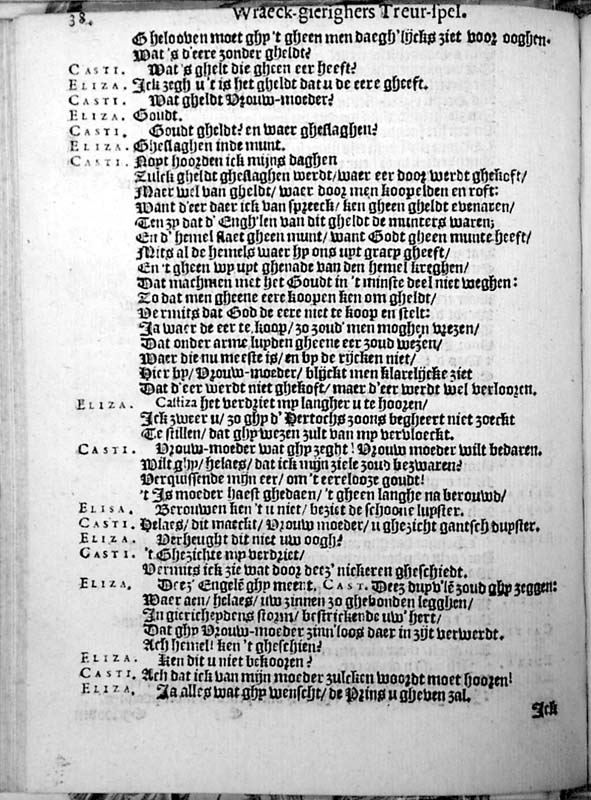 38.
Wraeck-gierighers Treur-spel.
Ghelooven moet ghy 't gheen men daegh'lijcks ziet voor ooghen.
Wat 's d'eere zonder gheldt?
CASTI. Wat 's ghelt die gheen eer heeft?
ELIZA. Ick zegh u 't is het gheldt dat u de eere gheeft.
CASTI. Wat gheldt Vrouw-moeder?
ELIZA. Goudt.
CASTI. Goudt gheldt? en waer gheslaghen?
ELIZA. Gheslaghen inde munt.
CASTI. Noyt hoorden ick mijns daghen
Zulck gheldt gheslaghen werdt/ waer eer door werdt ghekoft/
Maer wel van gheldt/ waer door men koopelden en roft:
Want d'eer daer ick van spreeck/ ken gheen gheldt evenaren/
Ten zy dat d' Engh'len van dit gheldt de munters waren;
En d' hemel slaet gheen munt/ want Godt gheen munte heeft/
Mits al de hemels waer hy ons uyt gracy gheeft/
En 't gheen wy uyt ghenade van den hemel kreghen/
Dat machmen met het Goudt in 't minste deel niet weghen:
Zo dat men gheene eere koopen ken om gheldt/
Vermits dat God de eere niet te koop en stelt:
Ja waer de eer te koop/ zo zoud' men moghen vrezen/
Dat onder arme luyden gheene eer zoud wezen/
Waer die nu meeste is/ en by de rijcken niet/
Hier by/ Vrouw-moeder/ blijckt men klarelijcke ziet
Dat d'eer werdt niet ghekoft/ maer d'eer werdt wel verlooren.
ELIZA. Castiza het verdriet my langher u te hooren/
Ick zweer u/ zo ghy d' Hertochs zoons begheert niet zoeckt
Te stillen/ dat ghy wezen zult van my vervloeckt.
CASTI. Vrouw-moeder wat ghy zeght! Vrouw moeder wilt bedaren.
Wilt ghy/ helaes/ dat ick mijn ziele zoud bezwaren?
Verquissende mijn eer/ om 't eerelooze goudt!
't Is moeder haest ghedaen/ 't gheen langhe na berouwd/
ELISA. Berouwen ken 't u niet/ beziet de schoone luyster.
CASTI. Helaes/ dit maeckt/ Vrouw moeder/ u ghezicht gantsch duyster.
ELIZA. Verheught dit niet uw oogh?
CASTI. 't Ghezichte my verdriet/
Vermits ick zie wat door deez' nickeren gheschiedt.
ELIZA. Deez' Engelẽ ghy meent, CAST. Deez duyv'lẽ zoud ghy zeggen:
Waer aen/ helaes/ uw zinnen zo ghebonden legghen/
In giericheydens storm/ bestrickende uw' hert/
Dat ghy Vrouw-moeder zinn'loos daer in zijt verwerdt.
Ach hemel! ken 't gheschien?
ELIZA. Ken dit u niet bekooren?
CASTI. Ach dat ick van mijn moeder zulcken woordt moet hooren!
ELIZA. Ja alles wat ghy wenscht/ de Prins u gheven zal.
Ick